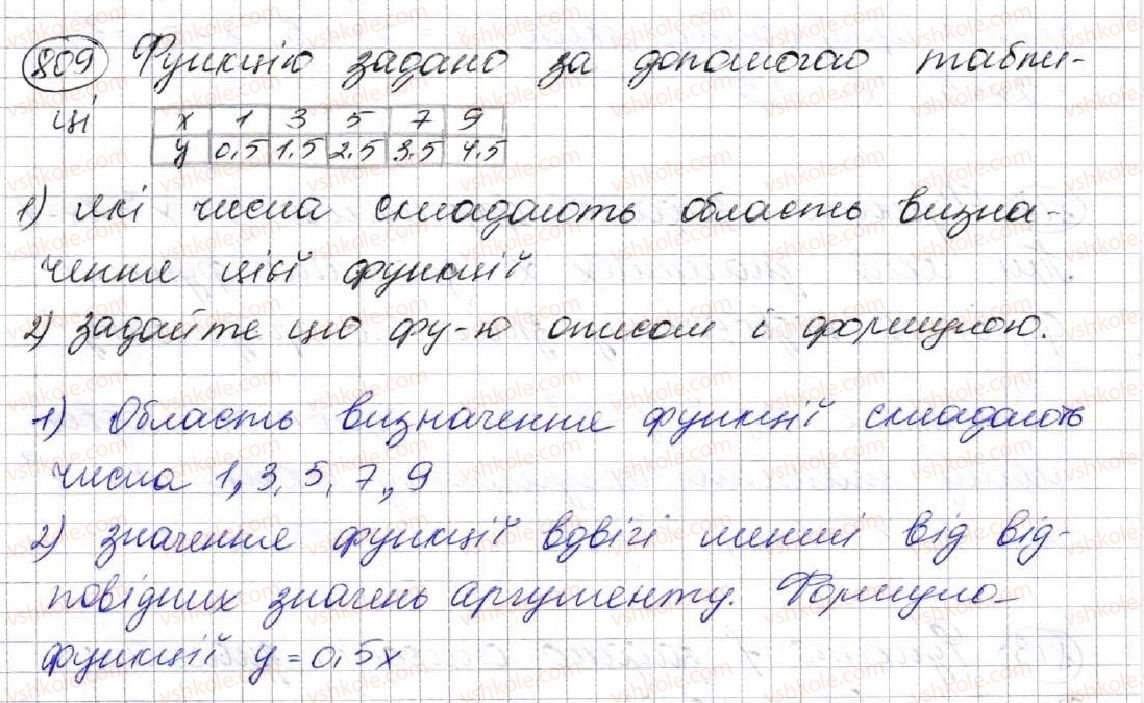 809 Функцію задано за допомогаю табли-
ці
х 1 3 5 7 9
у 0,5 1,5 2,5 3,5 4,5
1) які числа складають область визна-
чення цієї функції
2) задайте цю фу-ю описом і формулою.
1) Область визначення функції складають
числа 1, 3, 5, 7, 9
2) значення функції вдвічі менші від від-
повідних значень аргументу. Формула
функції y = 0,5x